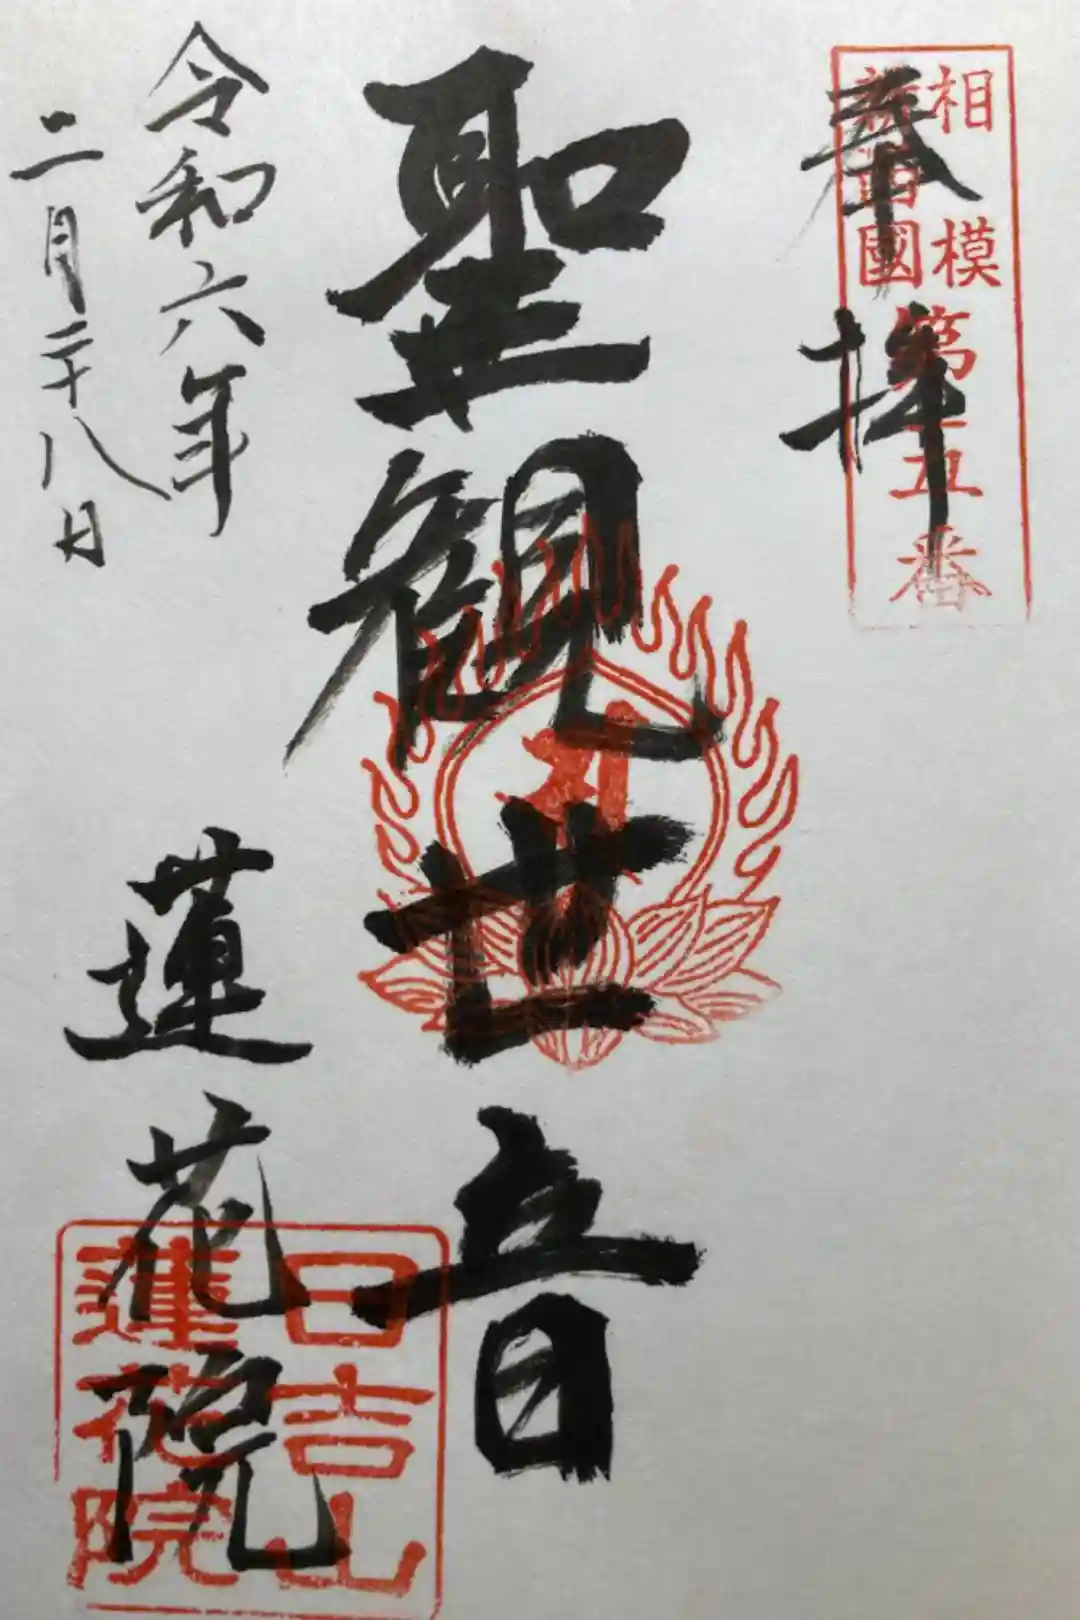 奉拝
相模
國
第五番
聖観世音
令和六年
二月二十八日
蓮花院
日吉山
蓮花院